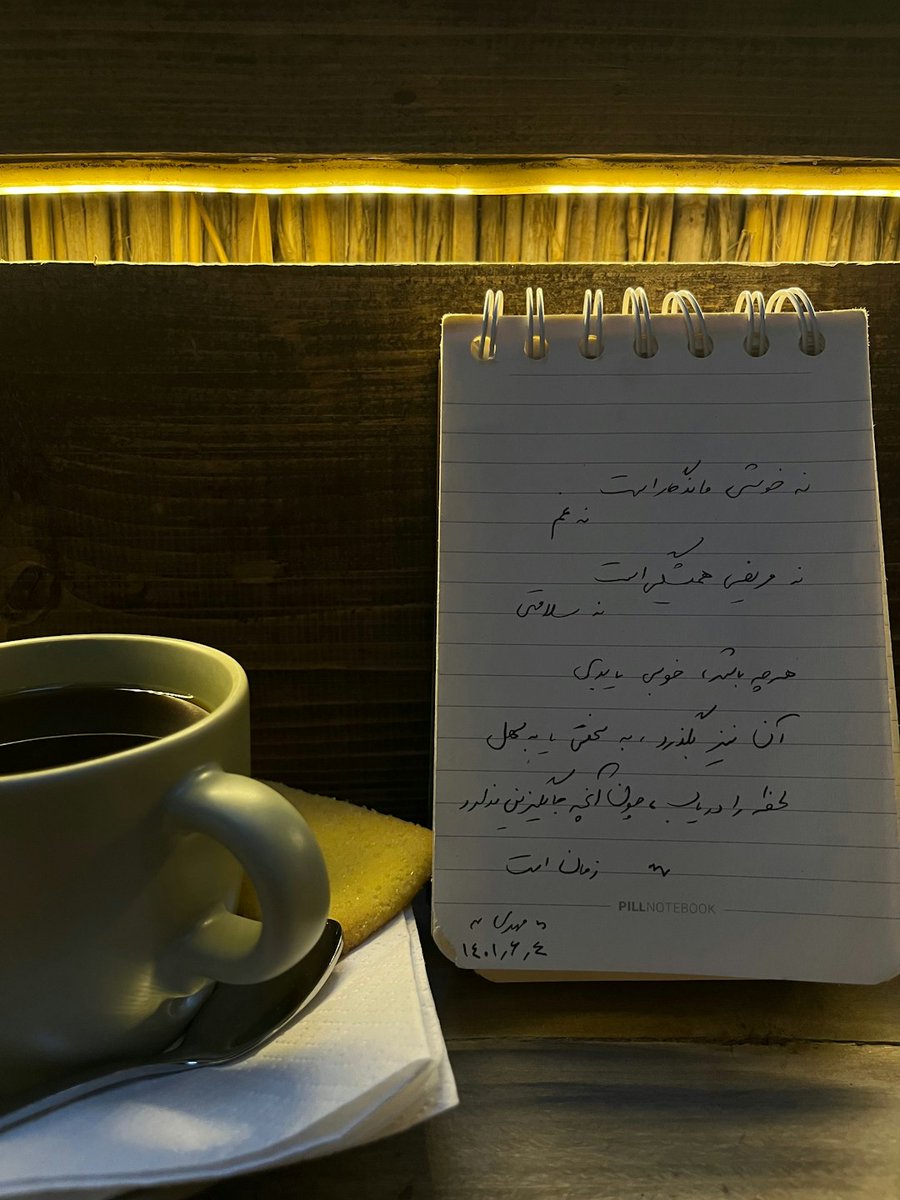 نه خوشی ماندگار است
نه غم
نه مریضی همیشگی است
نه سلامتی
هرچه باشد، خوبی یا بدی
آن نیز بگذرد، به سختی یا به سهل
لحظه را دریاب، چون آنچه جایگزینی ندارد
زمان است
PILLNOTEBOOK
مهدی
۱۴۰۱٫۶٫۴